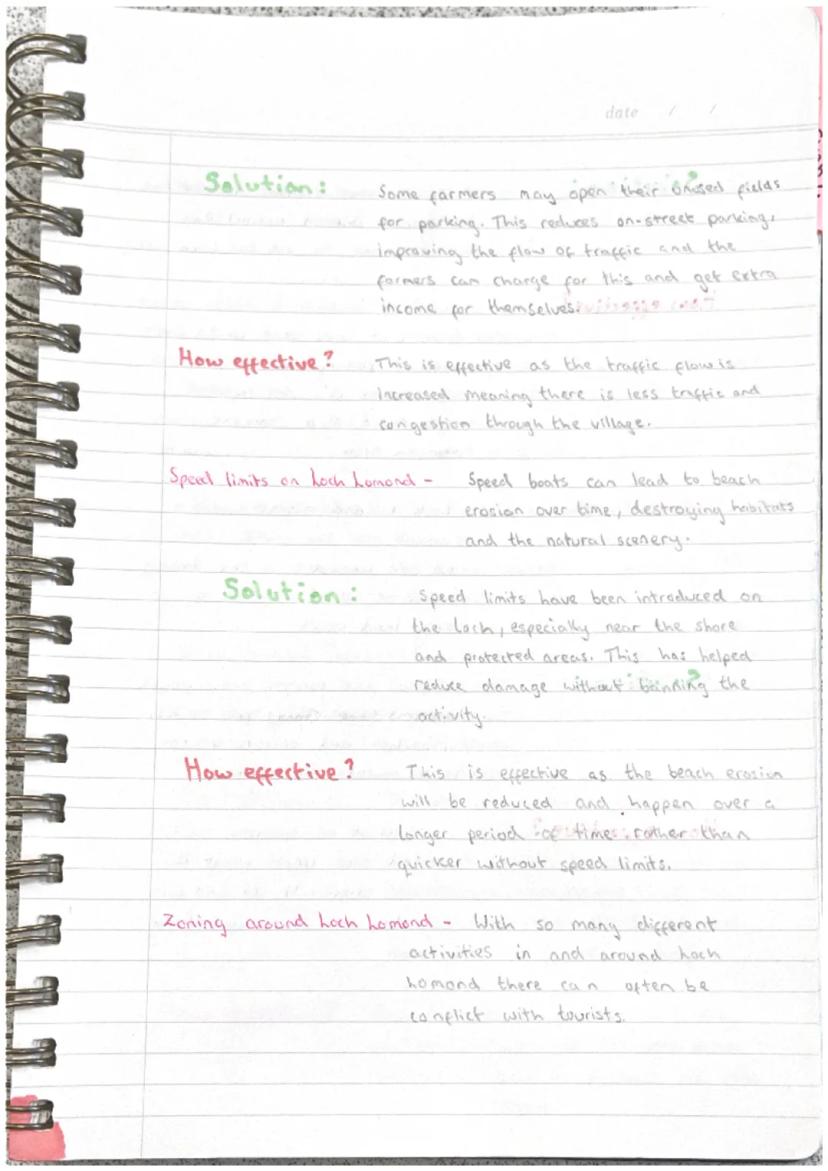 date / /
Solution: Some farmers may open their unused fields
for parking. This reduces on-street parking,
improving the flow of traffic and the
farmers can charge for this and get extra
income for themselves.
How effective? This is effective as the traffic flow is
increased meaning there is less traffic and
congestion through the village.
Speed limits on Loch Lomond - Speed boats can lead to beach
erosion over time, destroying habitats
and the natural scenery.
Solution: Speed limits have been introduced on
the loch, especially near the shore
and protected areas. This has helped
reduce damage without banning the
activity.
How effective? This is effective as the beach erosion
will be reduced and happen over a
longer period of time rather than
quicker without speed limits.
Zoning around Loch Lomond - With so many different
activities in and around Loch
Lomond there can often be
conflict with tourists.